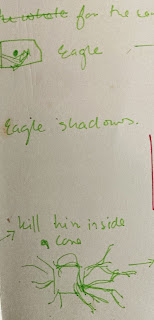 the whole for the con
Eagle
Eagle shadows.
kill him inside
a cave